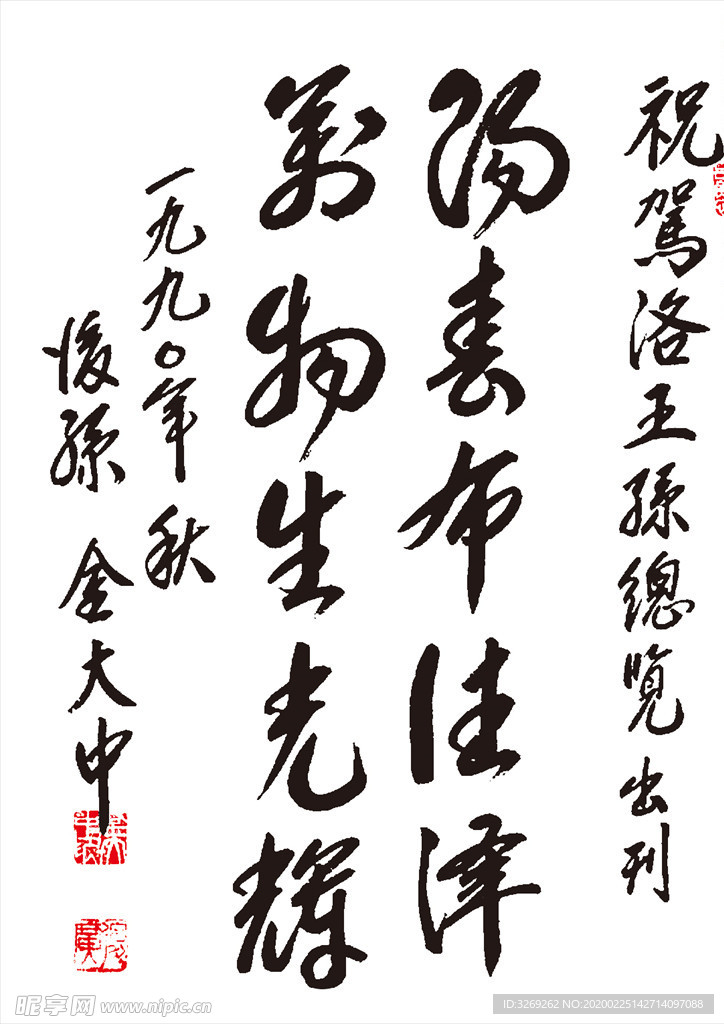 祝駕洛王孫總覽出刊
陽春布德澤
萬物生光輝
一九九〇年秋
後孫 金大中
昵享网 www.nipic.cn
ID:3269262 NO:20200225142714097088